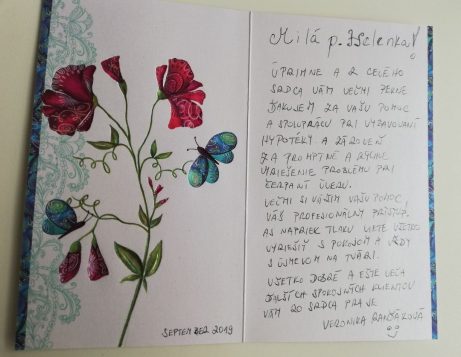 SEPTEMBER 2019
Milá p.
ÚPRIMNE A Z CELÉHO
SRDCA VÁM VEĽMI PEKNE
ĎAKUJEM ZA VAŠU POMOC
A SPOLUPRÁCU PRI VYBAVOVANÍ
HYPOTÉKY. A ZÁROVEŇ
ZA PROMPTNÉ A RÝCHLE
VYRIEŠENIE PROBLÉMU PRI
ČERPANÍ ÚVERU.
VEĽMI SI VÁŽIM VAŠU POMOC,
VÁŠ PROFESIONÁLNY PRÍSTUP,
AJ NAPRIEK TLAKU VIETE VŠETKO
VYRIEŠIŤ S POKOJOM A VŽDY
S ÚSMEVOM NA TVÁRI.
VŠETKO DOBRÉ A EŠTE VEĽA
ĎALŠÍCH SPOKOJNÝCH KLIENTOV
VÁM ZO SRDCA PRAJE
VERONIKA